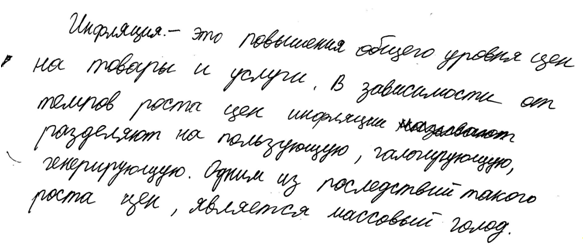 Инфляция. – это повышения общего уровня цен
на товары и услуги. В зависимости от
темпов роста цен инфляции называют
разделяют на пользующую, галопирующую,
генерирующую. Одним из последствий такого
роста цен, является массовый голод.